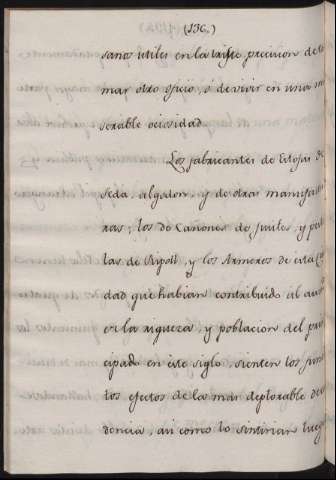 (136.)
sano utiles en la triste precision de to
mar otro oficio, ó de vivir en una mi
serable ociosidad
Los fabricantes de Estofas de
seda, algodon, y de otras manifactu
ras, los de Cañones de fusiles, y pisto
las de Ripoll, y los Armeros de esta Ciu
dad que habian contribuido al aum
en la riqueza, y poblacion del prin
cipado en este siglo sienten los fune
tos efectos de la mas deplorable deca
dencia, asi como lo sentirian luego